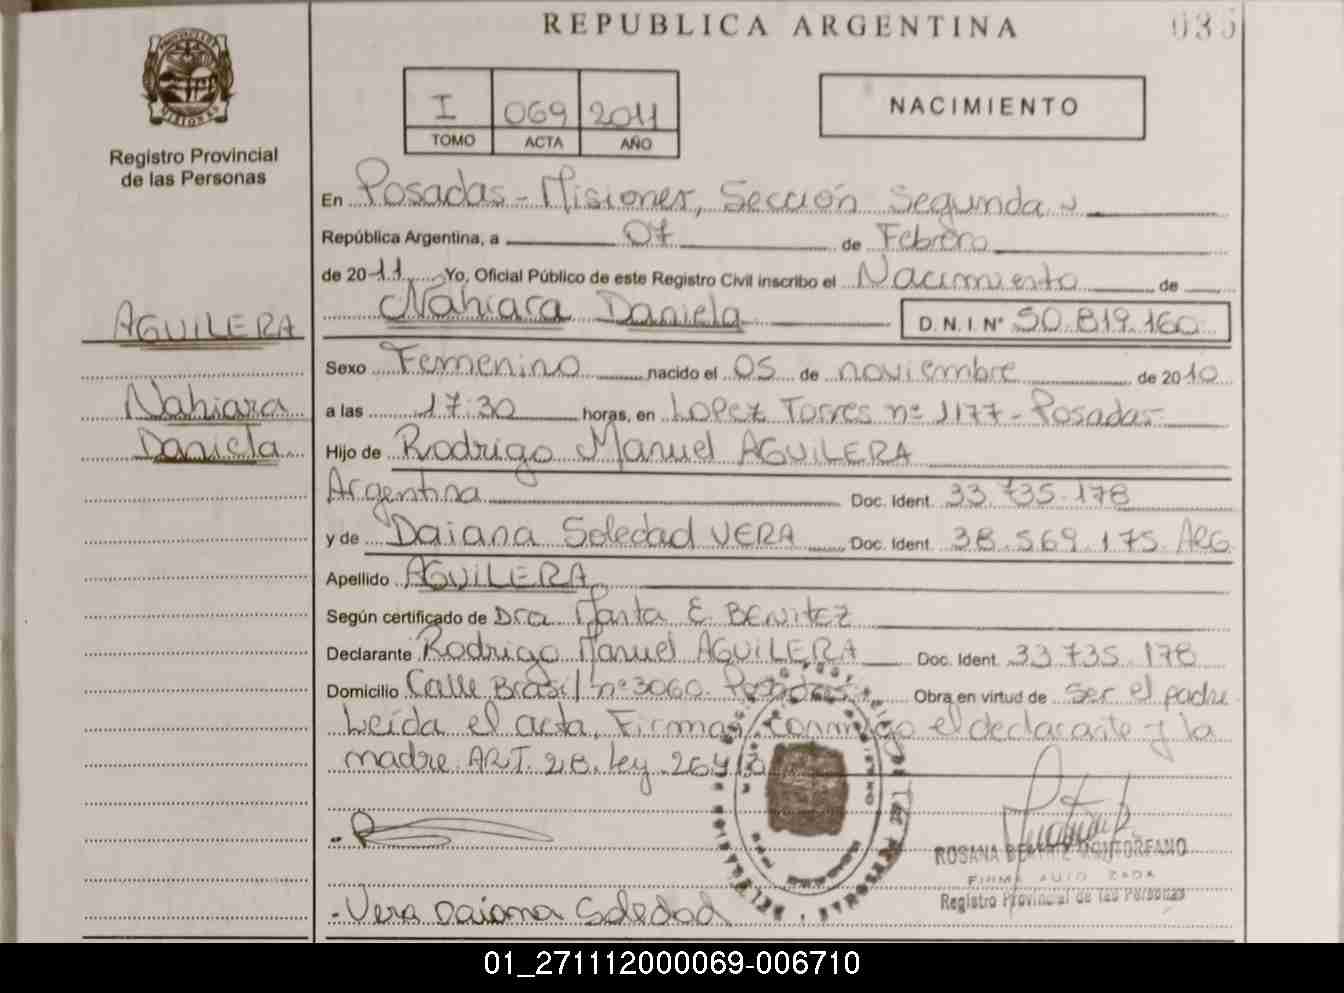 REPUBLICA ARGENTINA
035
Registro Provincial
de las Personas
I 069 2011
TOMO ACTA AÑO
NACIMIENTO
En Posadas - Misiones, Sección Segunda
República Argentina, a 07 de Febrero
de 2011 Yo, Oficial Público de este Registro Civil inscribo el Nacimiento de
Nahiara Daniela D.N.I. N° 50.819.160
AGUILERA
Nahiara
Daniela
Sexo Femenino nacido el 05 de noviembre de 2010
a las 17:30 horas, en Lopez Torres nº 1177 - Posadas
Hijo de Rodrigo Manuel AGUILERA
Argentina Doc. Ident. 33.735.178
y de Daiana Soledad VERA Doc. Ident. 38.569.175. ARG.
Apellido AGUILERA
Según certificado de Dra Marta E BENITEZ
Declarante Rodrigo Manuel AGUILERA Doc. Ident. 33.735.178
Domicilio Calle Brasil nº 3060. Posadas Obra en virtud de Ser el padre
Leída el acta, Firman conmigo el declarante y la
madre. ART. 28. Ley. 26413
ROSANA
Registro Provincial de las Personas
- Vera Daiana Soledad
01_271112000069-006710